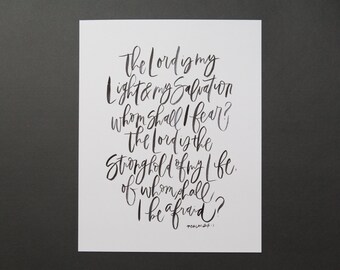 The Lord is my
Light & my Salvation
whom shall I fear?
The Lord is the
Stronghold of my Life.
of whom shall
I be afraid?